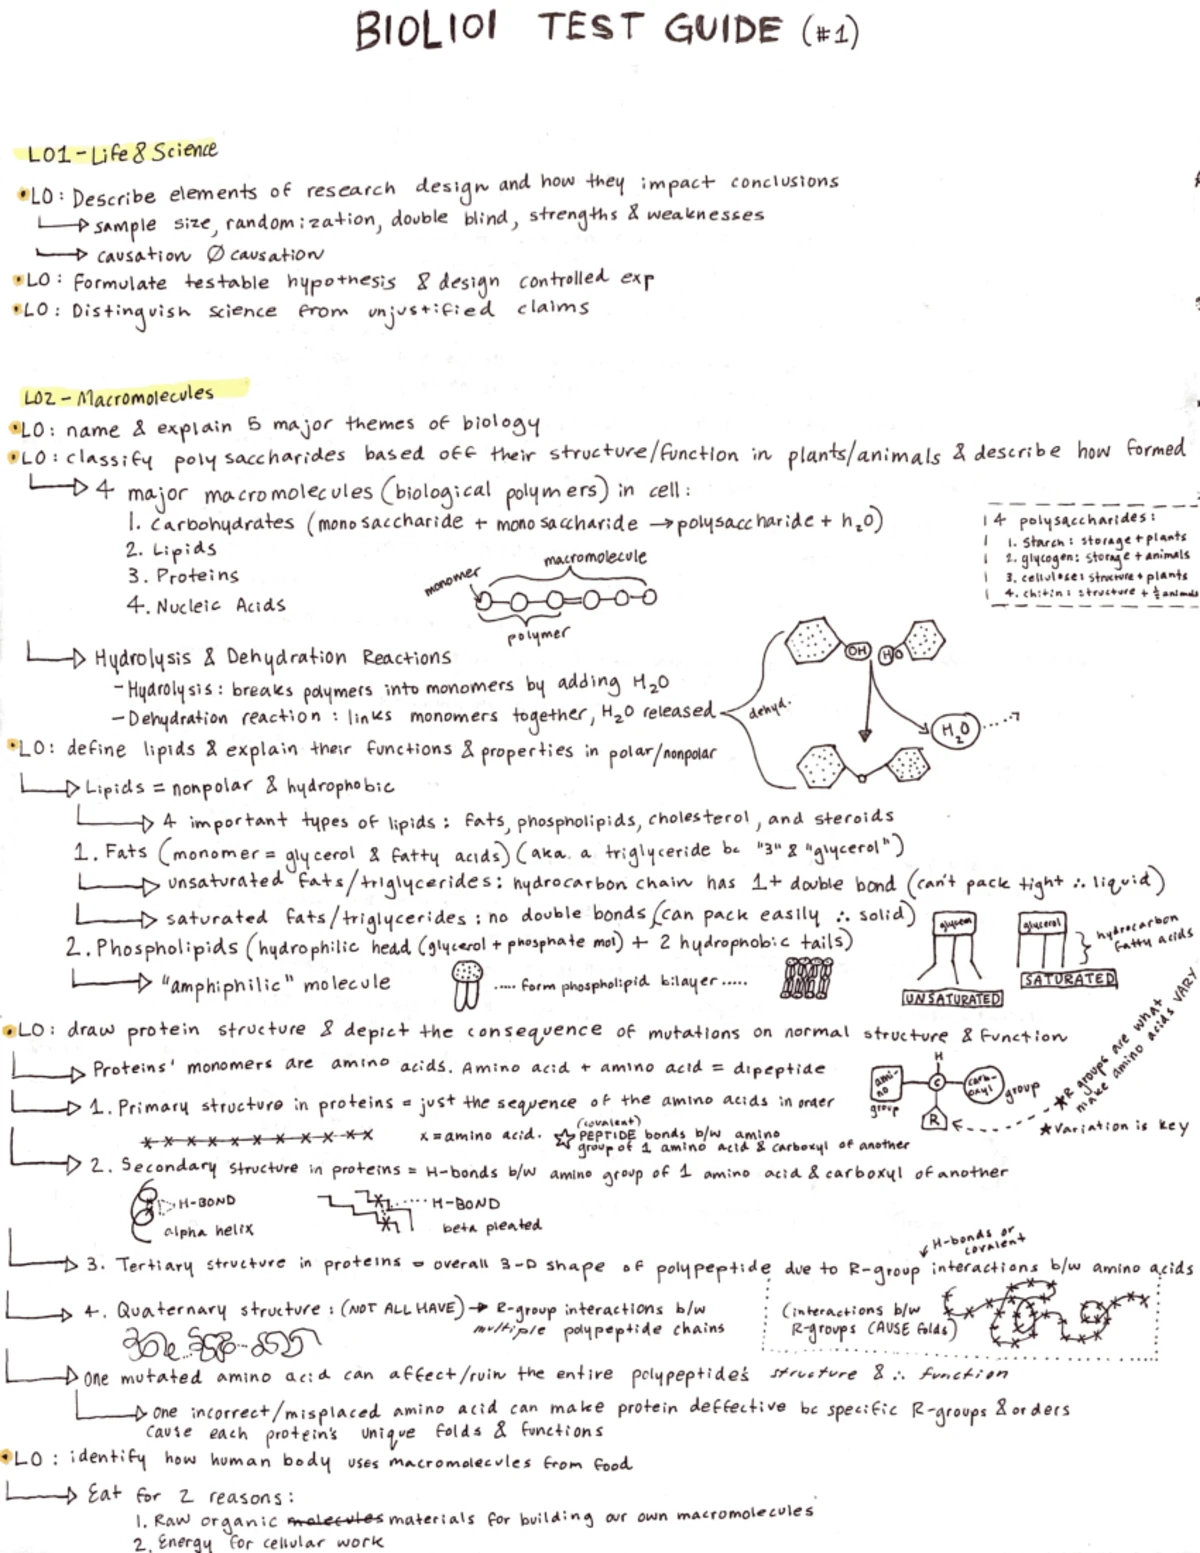 BIOL101 TEST GUIDE (#1)
LO1 - Life & Science
LO: Describe elements of research design and how they impact conclusions
sample size, randomization, double blind, strengths & weaknesses
causation Ø causation
LO: Formulate testable hypothesis & design controlled exp
LO: Distinguish science from unjustified claims
LO2 - Macromolecules
LO: name & explain 5 major themes of biology
LO: classify polysaccharides based off their structure/function in plants/animals & describe how formed
4 major macromolecules (biological polymers) in cell:
1. Carbohydrates (monosaccharide + monosaccharide → polysaccharide + h₂O)
2. Lipids
3. Proteins
4. Nucleic Acids
monomer
macromolecule
polymer
4 polysaccharides:
1. Starch: storage + plants
2. glycogen: storage + animals
3. cellulose: structure + plants
4. chitin: structure + animals
Hydrolysis & Dehydration Reactions
- Hydrolysis: breaks polymers into monomers by adding H₂O
- Dehydration reaction: links monomers together, H₂O released
dehyd.
OH
HO
H₂O
LO: define lipids & explain their functions & properties in polar/nonpolar
Lipids = nonpolar & hydrophobic
4 important types of lipids: fats, phospholipids, cholesterol, and steroids
1. Fats (monomer = glycerol & fatty acids) (aka. a triglyceride bc "3" & "glycerol")
unsaturated fats/triglycerides: hydrocarbon chain has 1+ double bond (can't pack tight ∴ liquid)
saturated fats/triglycerides: no double bonds (can pack easily ∴ solid)
2. Phospholipids (hydrophilic head (glycerol + phosphate mol) + 2 hydrophobic tails)
"amphiphilic" molecule
..... form phospholipid bilayer .....
glycerol
UNSATURATED
glycerol
SATURATED
hydrocarbon
fatty acids
LO: draw protein structure & depict the consequence of mutations on normal structure & function
Proteins' monomers are amino acids. Amino acid + amino acid = dipeptide
1. Primary structure in proteins = just the sequence of the amino acids in order
x = amino acid.
(covalent)
☆ PEPTIDE bonds b/w amino
group of 1 amino acid & carboxyl of another
amino
group
H
C
carboxyl
group
R
★ R groups are what
make amino acids VARY
★ Variation is key
2. Secondary structure in proteins = H-bonds b/w amino group of 1 amino acid & carboxyl of another
H-BOND
alpha helix
H-BOND
beta pleated
3. Tertiary structure in proteins = overall 3-D shape of polypeptide due to R-group interactions b/w amino acids
H-bonds or
covalent
(interactions b/w
R-groups CAUSE folds)
4. Quaternary structure: (NOT ALL HAVE) → R-group interactions b/w
multiple polypeptide chains
One mutated amino acid can affect/ruin the entire polypeptide's structure & ∴ function
One incorrect/misplaced amino acid can make protein deffective bc specific R-groups & orders
cause each protein's unique folds & functions
LO: identify how human body uses macromolecules from food
Eat for 2 reasons:
1. Raw organic molecules materials for building our own macromolecules
2. Energy for cellular work